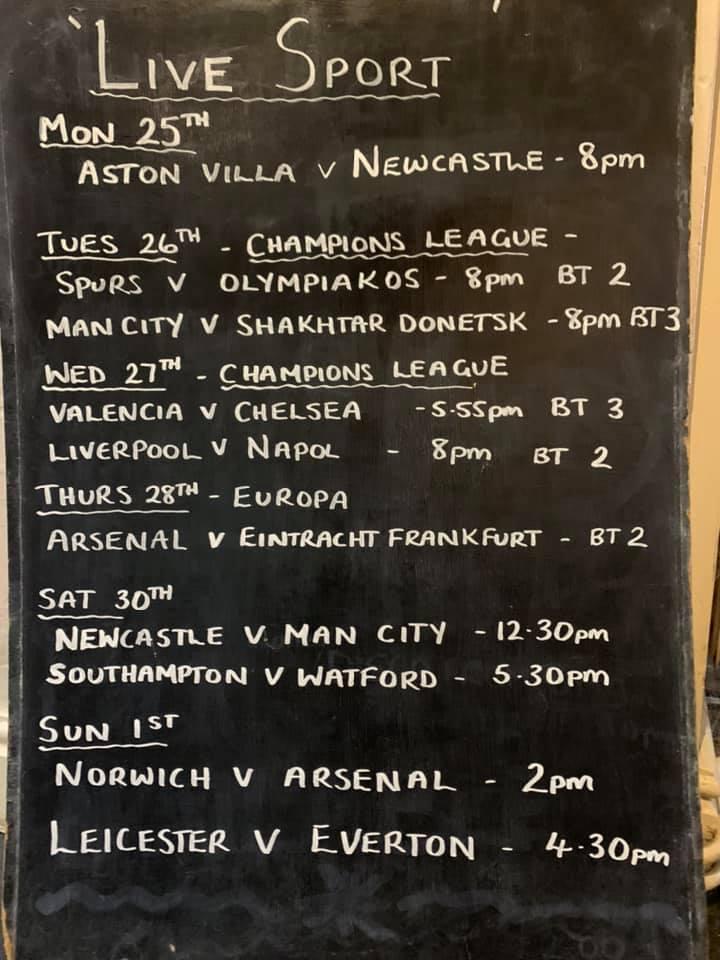 'LIVE SPORT
MON 25TH
ASTON VILLA V NEWCASTLE - 8pm
TUES 26TH - CHAMPIONS LEAGUE -
SPURS V OLYMPIAKOS - 8pm BT 2
MAN CITY V SHAKHTAR DONETSK - 8pm BT3
WED 27TH - CHAMPIONS LEAGUE
VALENCIA V CHELSEA - 5.55pm BT 3
LIVERPOOL V NAPOL - 8pm BT 2
THURS 28TH - EUROPA
ARSENAL V EINTRACHT FRANKFURT - BT 2
SAT 30TH
NEWCASTLE V. MAN CITY - 12.30pm
SOUTHAMPTON V WATFORD - 5.30pm
SUN 1ST
NORWICH V ARSENAL - 2pm
LEICESTER V EVERTON - 4.30pm